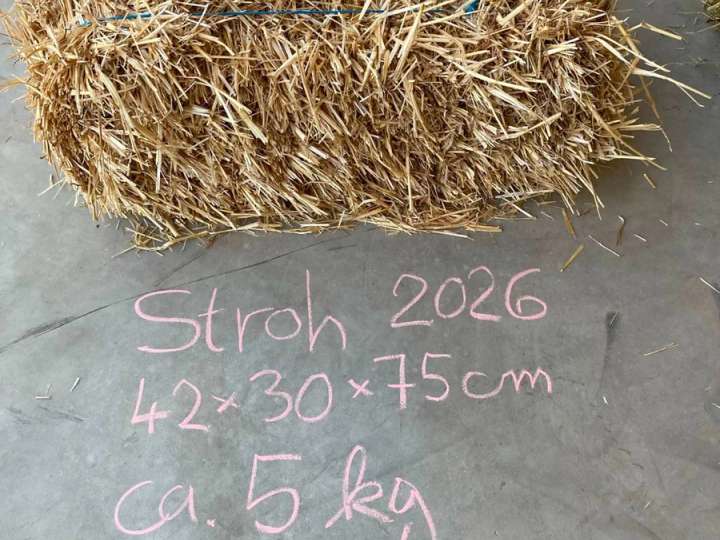 Stroh 2026
42×30×75cm
ca. 5 kg